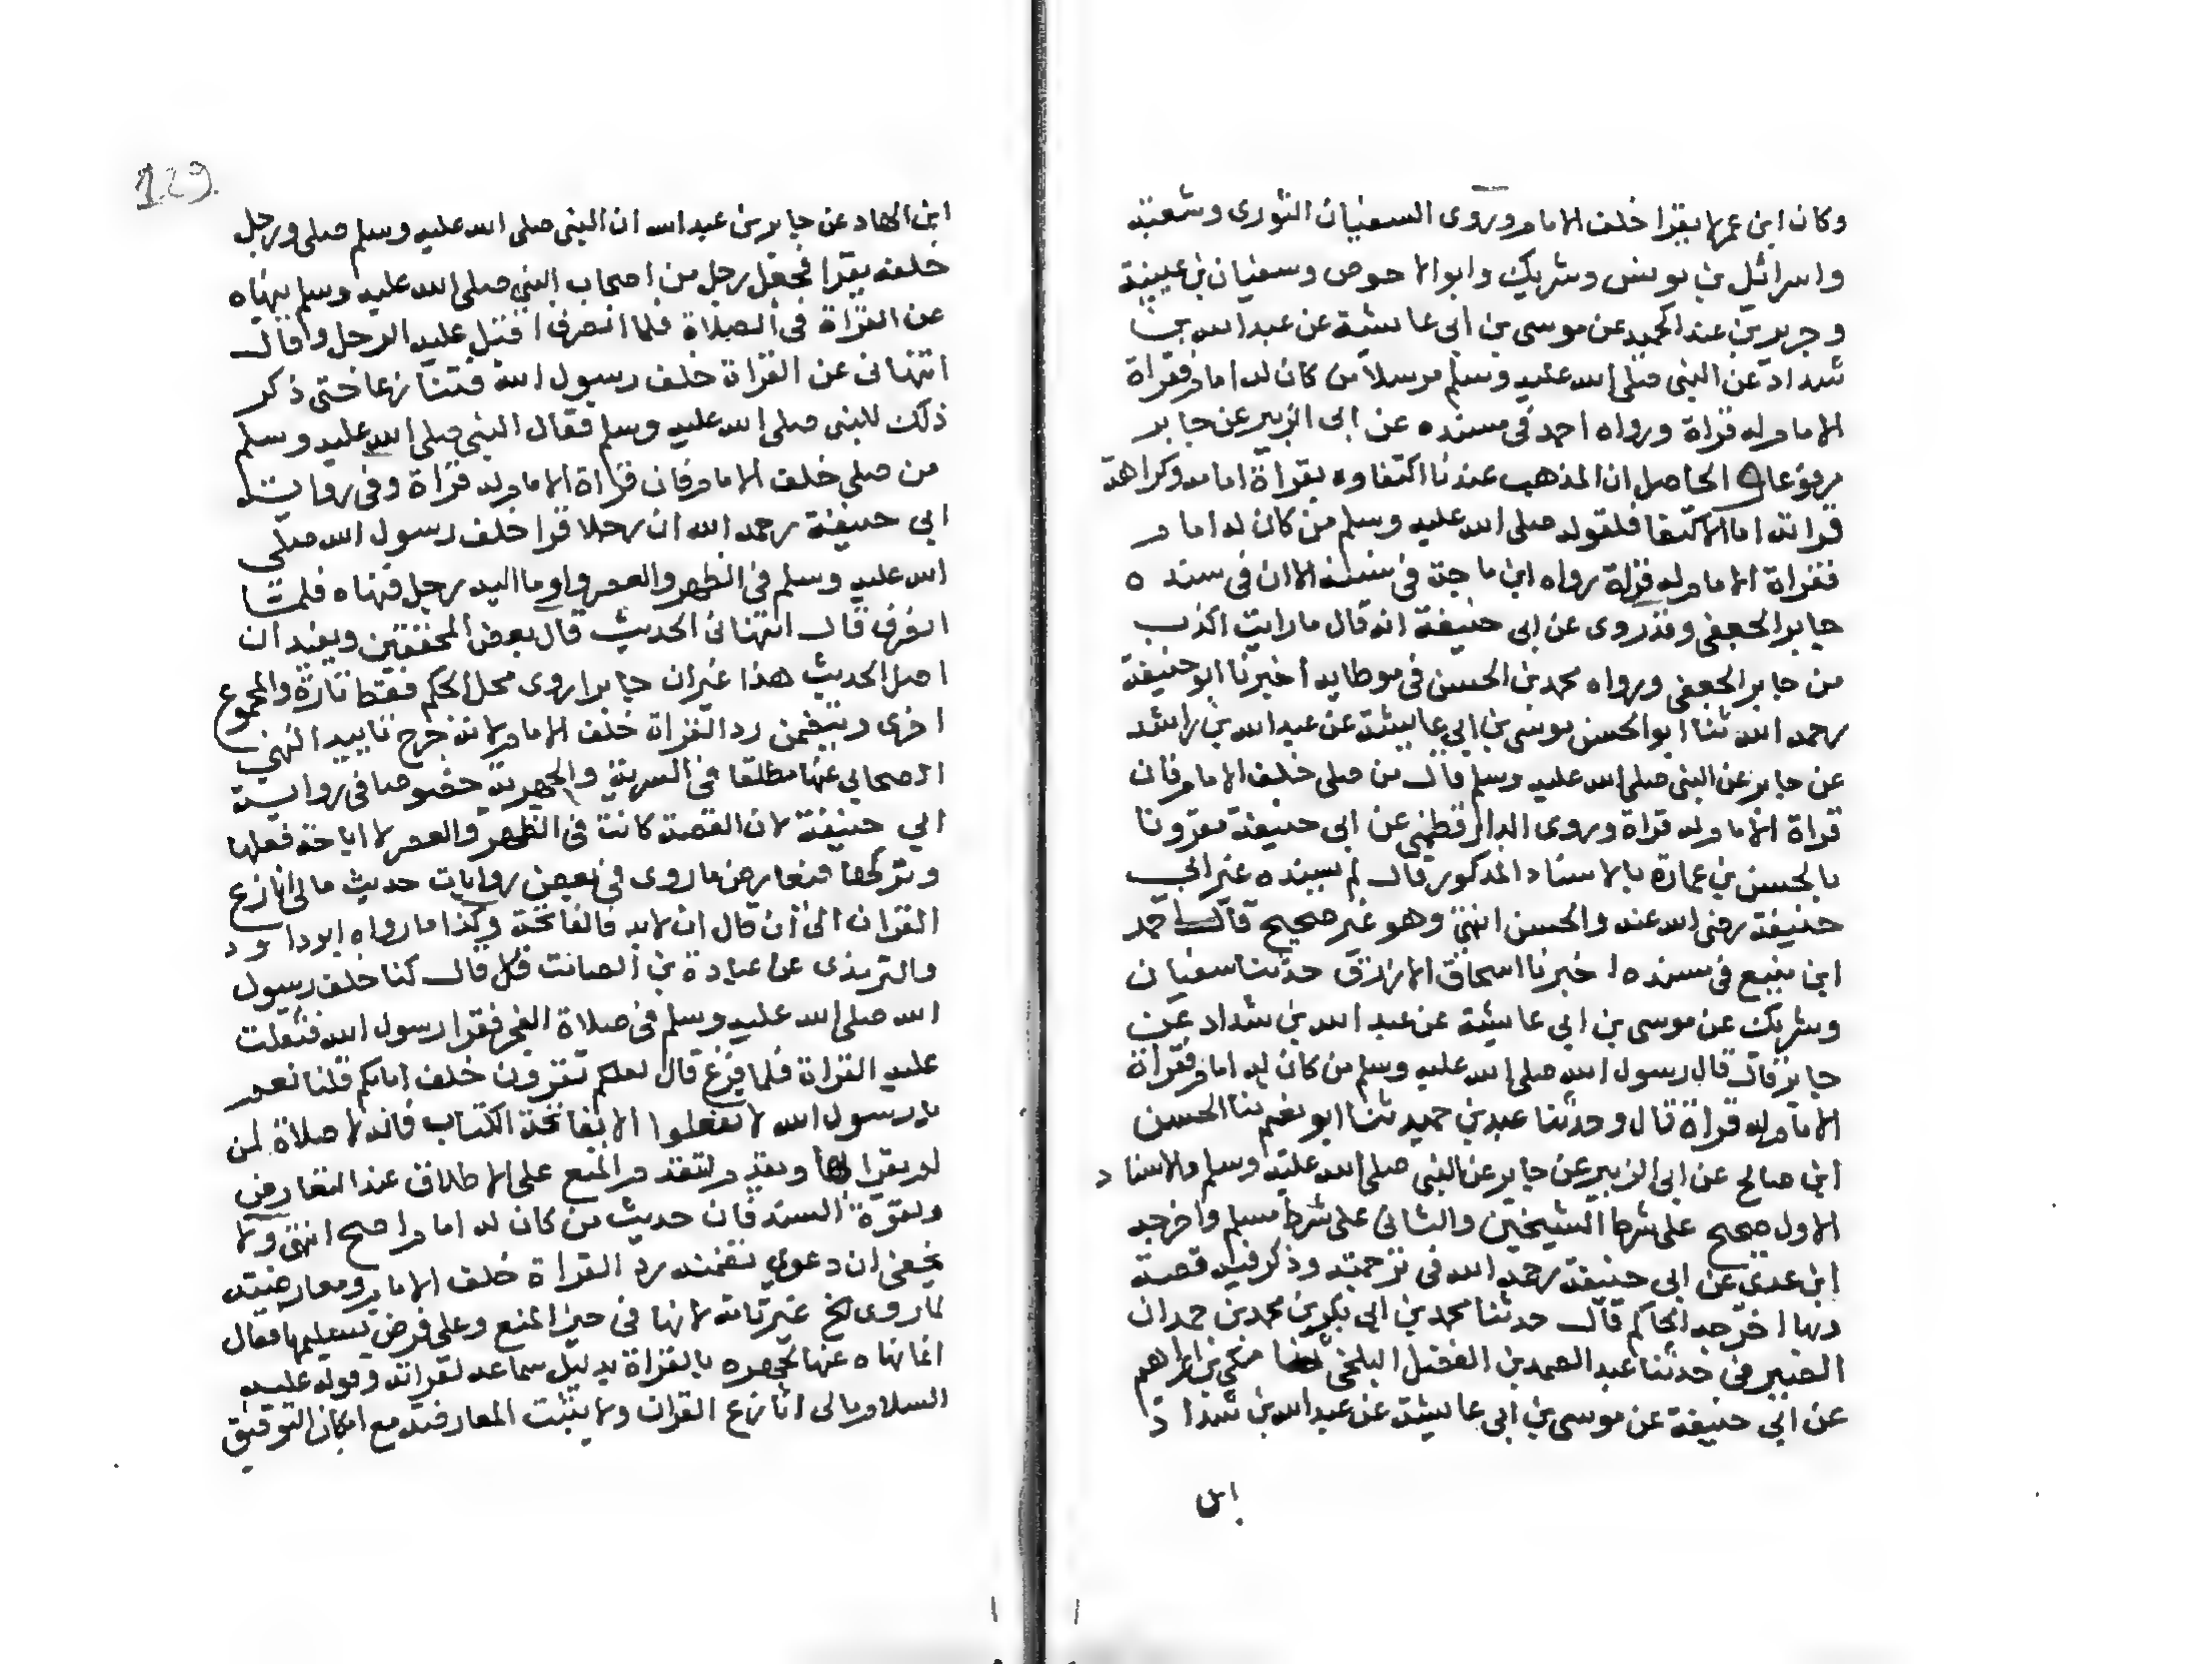 وكان ابن عمر لا يقرا خلف الامام وروى السفيانان الثورى وشعبة
واسرائيل بن يونس وشريك وابو الاحوص وسفيان بن عيينة
وجرير بن عبد الحميد عن موسى بن ابى عائشة عن عبد الله بن
شداد عن النبى صلى الله عليه وسلم مرسلا من كان له امام فقراة
الامام له قراة ورواه احمد فى مسنده عن ابى الزبير عن جابر
مرفوعا والحاصل ان المذهب عندنا اكتفاوه بقراة امامه وكراهة
قراته اما الاكتفا فلقوله صلى الله عليه وسلم من كان له امام
فقراة الامام له قراة رواه ابن ماجة فى سننه الا ان فى سنده
جابر الجعفى وقد روى عن ابى حنيفة انه قال ما رايت اكذب
من جابر الجعفى ورواه محمد بن الحسن فى موطايه اخبرنا ابو حنيفة
رحمه الله ثنا ابو الحسن موسى بن ابى عايشة عن عبد الله بن راشد
عن جابر عن النبى صلى الله عليه وسلم قال من صلى خلف الامام فان
قراة الامام له قراة وروى الدارقطنى عن ابى حنيفة مقرونا
بالحسن بن عمارة بالاسناد المذكور قال لم يسنده غير ابى
حنيفة رضى الله عنه والحسن انتهى وهو غير صحيح قال احمد
ابن منيع فى مسنده اخبرنا اسحاق الازرق حدثنا سفيان
وشريك عن موسى بن ابى عايشة عن عبد الله بن شداد عن
جابر قال قال رسول الله صلى الله عليه وسلم من كان له امام فقراة
الامام له قراة قال وحدثنا عبد بن حميد ثنا ابو نعيم ثنا الحسن
ابن صالح عن ابى الزبير عن جابر عن النبى صلى الله عليه وسلم والاسناد
الاول صحيح على شرط الشيخين والثانى على شرط مسلم واخرجه
ابن عدى عن ابى حنيفة رحمه الله فى ترجمته وذكر فيه قصة
وبها اخرجه الحاكم قال حدثنا محمد بن ابى بكر بن محمد بن حمدان
الصيرفى حدثنا عبد الصمد بن الفضل البلخى ثنا مكى بن ابراهيم
عن ابى حنيفة عن موسى بن ابى عايشة عن عبد الله بن شداد
ابن
129
ابن الهاد عن جابر بن عبد الله ان النبى صلى الله عليه وسلم صلى ورجل
خلفه يقرا فجعل رجل من اصحاب النبى صلى الله عليه وسلم ينهاه
عن القراة فى الصلاة فلما انصرف اقبل عليه الرجل وقال
اتنهانى عن القراة خلف رسول الله فتنازعا حتى ذكر
ذلك للنبى صلى الله عليه وسلم فقال النبى صلى الله عليه وسلم
من صلى خلف الامام فان قراة الامام له قراة وفى رواية
ابى حنيفة رحمه الله ان رجلا قرا خلف رسول الله صلى
الله عليه وسلم فى الظهر والعصر واوما اليه رجل فنهاه فلما
انصرف قال اتنهانى الحديث قال بعض المحققين ويفيد ان
اصل الحديث هذا غير ان جابرا روى محل الحكم فقط تارة والمجموع
اخرى ويتضمن رد القراة خلف الامام لانه خرج تاييد النهى
الصحابى عنها مطلقا فى السرية والجهرية خصوصا فى رواية
ابى حنيفة لان القصة كانت فى الظهر والعصر لا اباحة فعلها
وتركها فيعارض ما روى فى بعض روايات حديث ما لى انازع
القران الى ان قال ان لابد فالفاتحة وكذا ما رواه ابو داود
والترمذى عن عبادة بن الصامت قال كنا خلف رسول
الله صلى الله عليه وسلم فى صلاة الفجر فقرا رسول الله فثقلت
عليه القراة فلما فرغ قال لعلكم تقرون خلف امامكم قلنا نعم
يا رسول الله لا تفعلوا الا بفاتحة الكتاب فانه لا صلاة لمن
لم يقرا بها ويقدم لتقدم المنع على الاطلاق عند التعارض
ولقوة السند فان حديث من كان له امام اصح انتهى ولا
يخفى ان دعوى تضمنه رد القراة خلف الامام ومعارضته
لما روى الخ غير تامة لانها فى حيز المنع وعلى فرض تسليمها فقال
انما نهاه عنها لجهره بالقراة بدليل سماعه لقراته وقوله عليه
السلام ما لى انازع القران ولا يثبت المعارضة مع امكان التوفيق